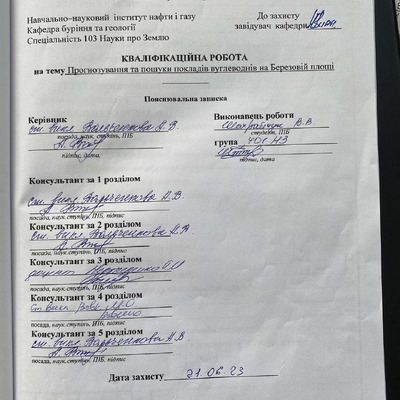 Навчально–науковий інститут нафти і газу
Кафедра буріння та геології
Спеціальність 103 Науки про Землю
До захисту
завідувач кафедри
КВАЛІФІКАЦІЙНА РОБОТА
на тему Прогнозування та пошуки покладів вуглеводнів на Березовій площі
Пояснювальна записка
Керівник
ст. викл. А.В.
посада, наук. ступінь, ПІБ
підпис, дата
Виконавець роботи
В.В.
студент, ПІБ
група 401 НЗ
підпис, дата
Консультант за 1 розділом
ст. викл. А.В.
посада, наук.ступінь, ПІБ, підпис
Консультант за 2 розділом
ст. викл. А.В.
посада, наук.ступінь, ПІБ, підпис
Консультант за 3 розділом
доцент
посада, наук.ступінь, ПІБ, підпис
Консультант за 4 розділом
посада, наук.ступінь, ПІБ, підпис
Консультант за 5 розділом
ст. викл. А.В.
посада, наук.ступінь, ПІБ, підпис
Дата захисту 21.06.23